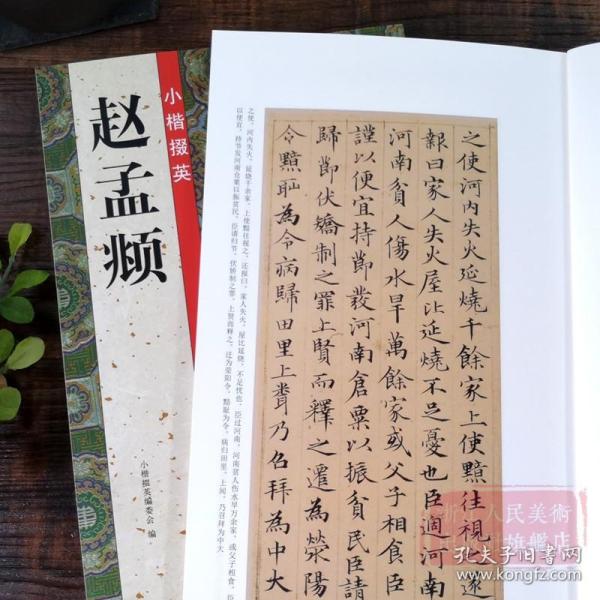 小楷掇英
赵孟頫
小楷掇英编委会 编
之使河内失火延燒千餘家上使黯往視
報曰家人失火屋比延燒不足憂也臣過河南
河南貧人傷水旱萬餘家或父子相食臣
謹以便宜持節發河南倉粟以振貧民臣請
歸節伏矯制之罪上賢而釋之遷為滎陽
令黯恥為令病歸田里上聞乃召拜為中大
之使，河内失火，延烧千余家，上使黯往视之。还报曰，家人失火，屋比延烧，不足忧也。臣过河南，河南贫人伤水旱万余家，或父子相食，臣
以便宜，持节发河南仓粟以振贫民。臣请归节，伏矫制之罪。上贤而释之，迁为荥阳令。黯耻为令，病归田里。上闻，乃召拜为中大
人民美術
旗艦店
孔夫子旧书网
www.kongfz.com